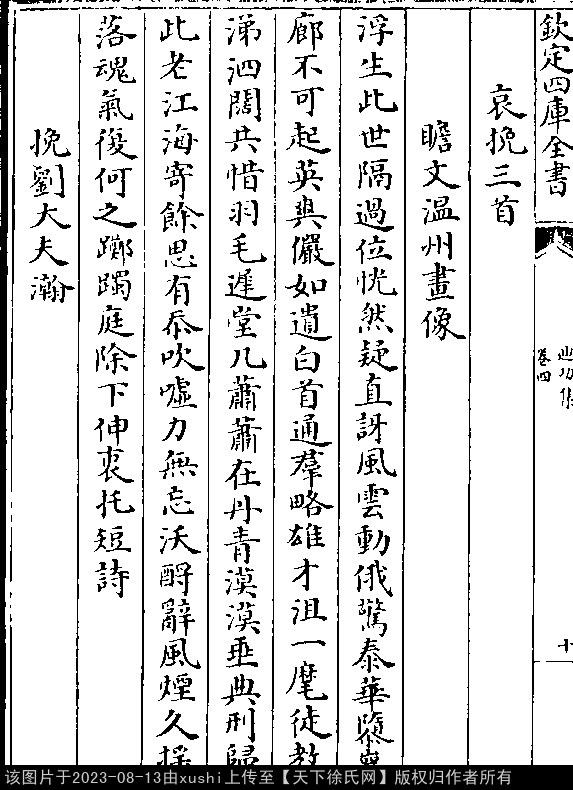 欽定四庫全書
卷四
十
哀挽三首
瞻文温州畫像
浮生此世隔過位恍然疑直訝風雲動俄驚泰華隳
廊不可起英奥儼如遺白首通羣略雄才沮一麾徒教
涕泗闊共惜羽毛遲堂几蕭蕭在丹青漠漠垂典刑歸
此老江海寄餘思有忝吹噓力無忘沃酹辭風煙久
落魂氣復何之躑躅庭除下伸衷托短詩
挽劉大夫瀚
该图片于2023-08-13由xushi上传至【天下徐氏网】版权归作者所有